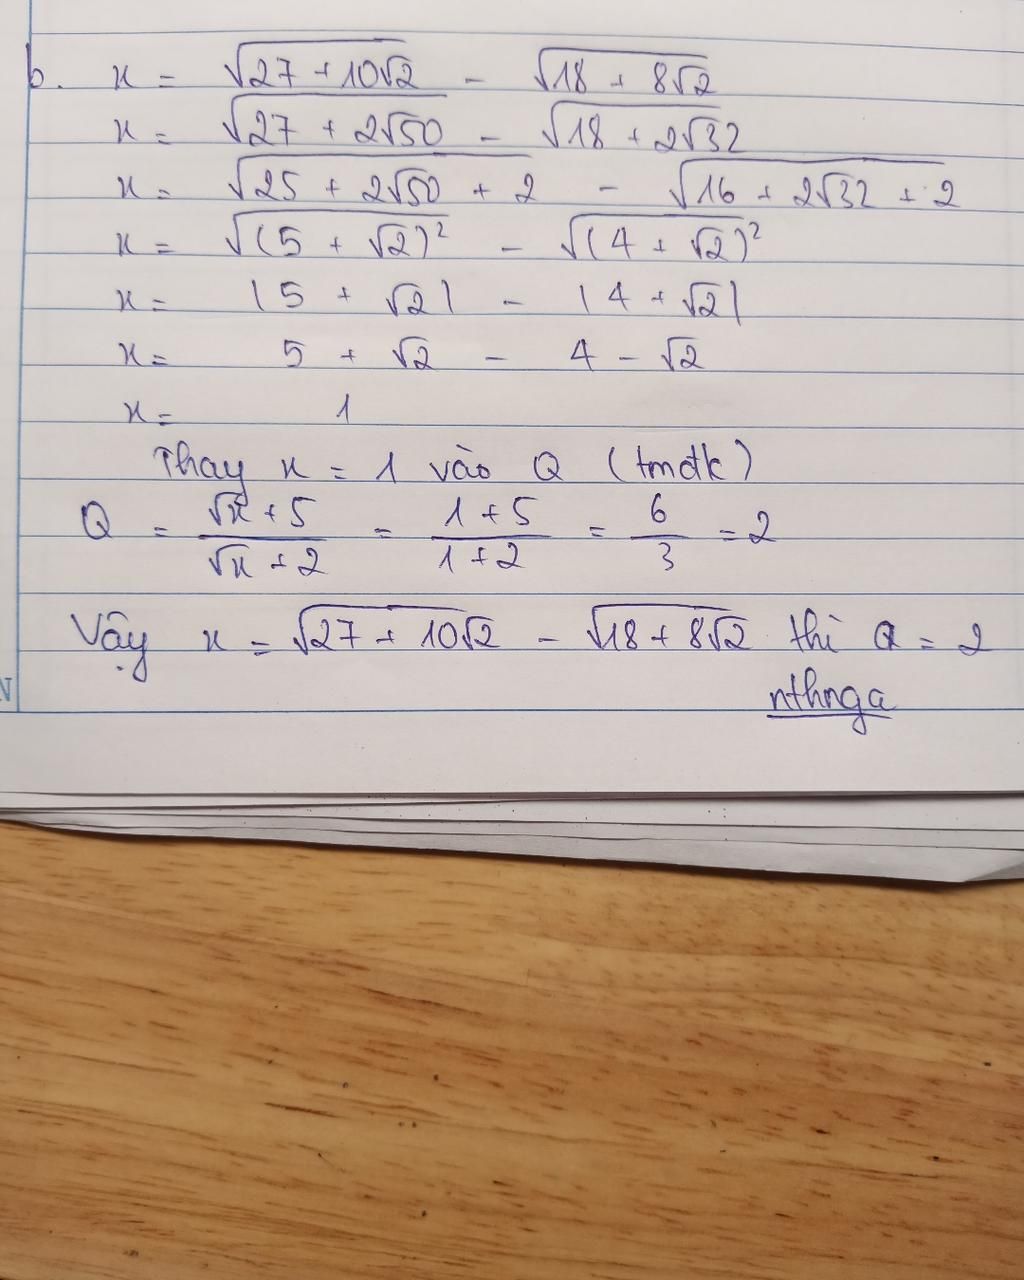 b. x = √(27 + 10√2) - √(18 + 8√2)
x = √(27 + 2√50) - √(18 + 2√32)
x = √(25 + 2√50 + 2) - √(16 + 2√32 + 2)
x = √((5 + √2)²) - √((4 + √2)²)
x = |5 + √2| - |4 + √2|
x = 5 + √2 - 4 - √2
x = 1
Thay x = 1 vào Q (tmđk)
Q = (√x + 5)/(√x + 2) = (1 + 5)/(1 + 2) = 6/3 = 2
Vậy x = √(27 + 10√2) - √(18 + 8√2) thì Q = 2
nthnga
N